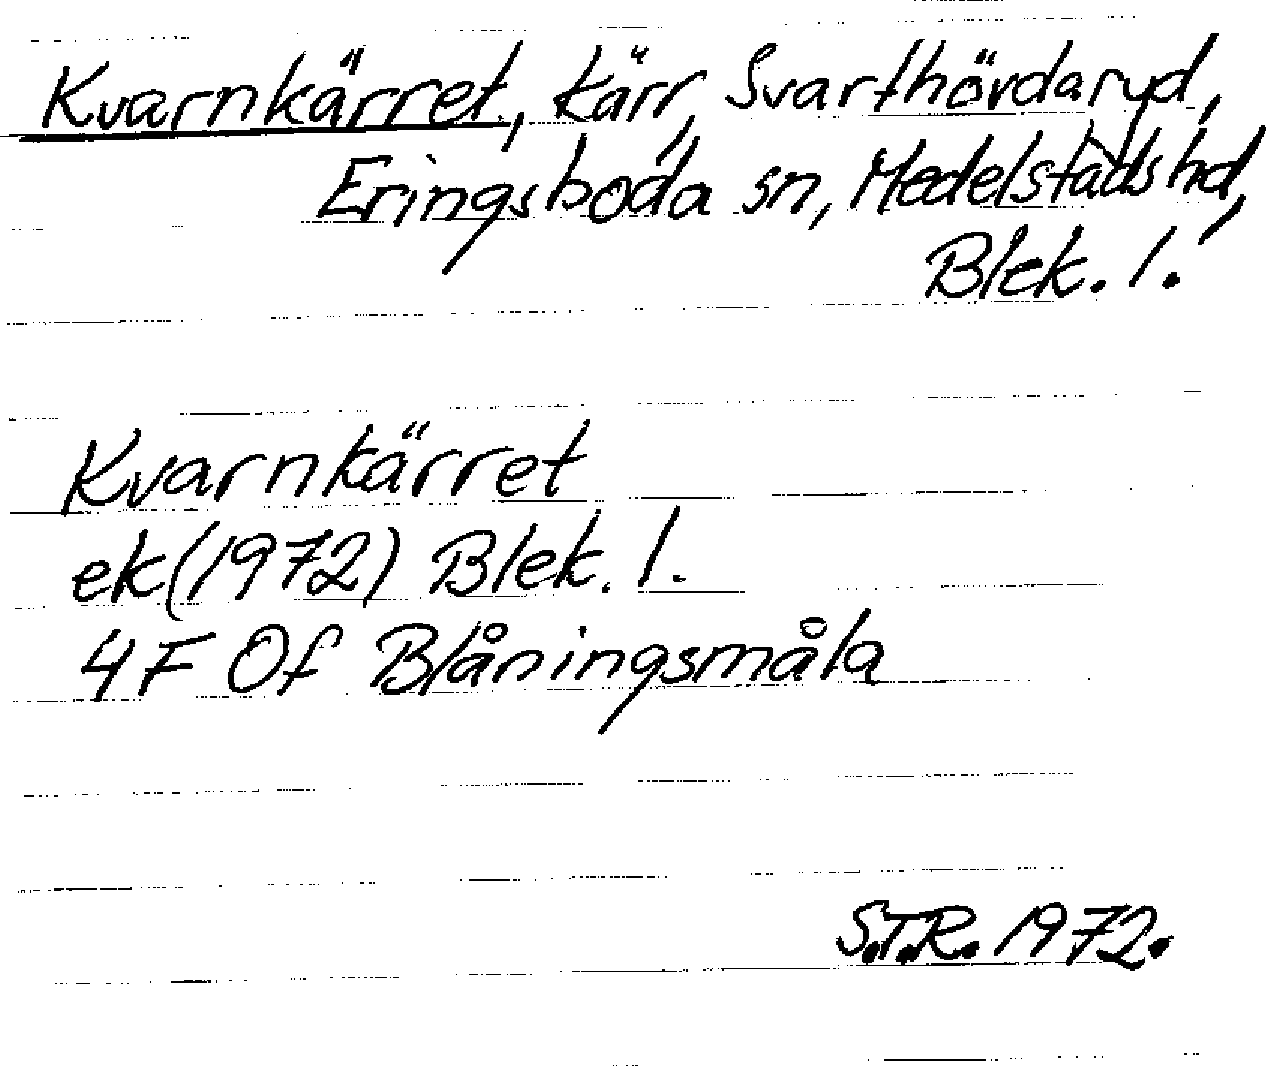 Kvarnkärret, kärr, Svarthövdaryd,
Eringsboda sn, Medelstads hd,
Blek. l.
Kvarnkärret
ek (1972) Blek. l.
4F 0f Blåningsmåla
S.T.R. 1972.